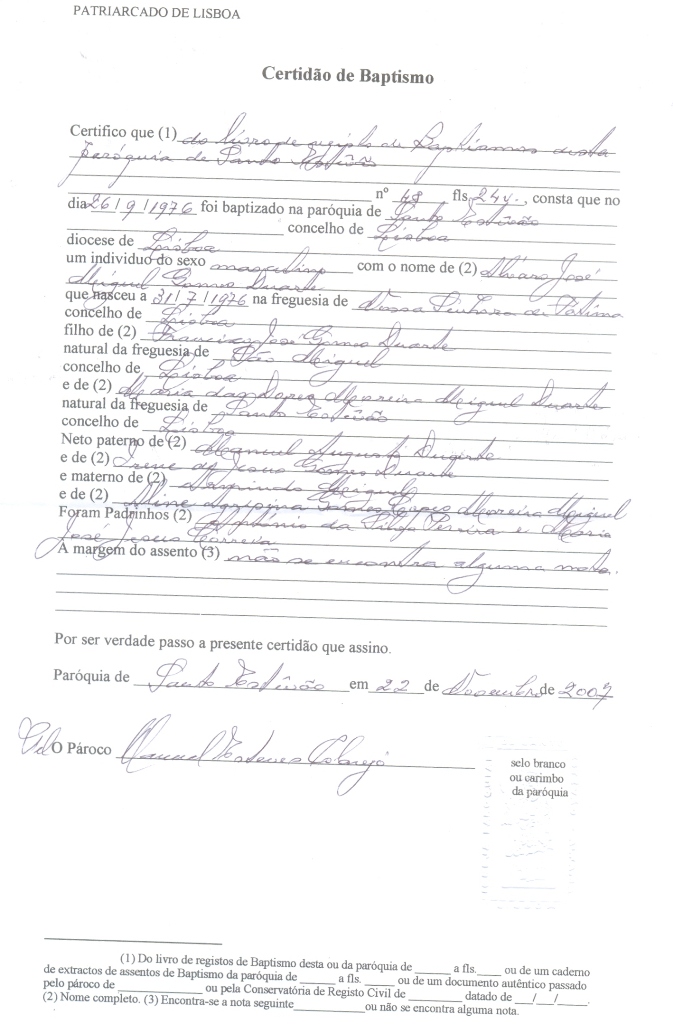 PATRIARCADO DE LISBOA
Certidão de Baptismo
Certifico que (1) do livro de registo de Baptismos desta
paróquia de Santo Estêvão
nº 48 fls. 24v., consta que no
dia 26/9/1976 foi baptizado na paróquia de Santo Estêvão
concelho de Lisboa
diocese de Lisboa
um individuo do sexo masculino com o nome de (2) Álvaro José
Miguel Gomes Duarte
que nasceu a 31/7/1976 na freguesia de Nossa Senhora de Fátima
concelho de Lisboa
filho de (2) Francisco José Gomes Duarte
natural da freguesia de São Miguel
concelho de Lisboa
e de (2) Maria das Dores Moreira Miguel Duarte
natural da freguesia de Santo Estêvão
concelho de Lisboa
Neto paterno de (2) Manuel Augusto Duarte
e de (2) Irene de Jesus Gomes Duarte
e materno de (2) Miguel
e de (2) Moreira Miguel
Foram Padrinhos (2) António da Silva Pereira e Maria
José Jesus Correia
À margem do assento (3) não se encontra alguma nota.
Por ser verdade passo a presente certidão que assino.
Paróquia de Santo Estêvão em 22 de de 2007
O Pároco Manuel Esteves
selo branco
ou carimbo
da paróquia
(1) Do livro de registos de Baptismo desta ou da paróquia de ______ a fls.____ ou de um caderno
de extractos de assentos de Baptismo da paróquia de ______ a fls. ____ ou de um documento autêntico passado
pelo pároco de ____________ ou pela Conservatória de Registo Civil de ________ datado de __/__/____.
(2) Nome completo. (3) Encontra-se a nota seguinte__________ou não se encontra alguma nota.